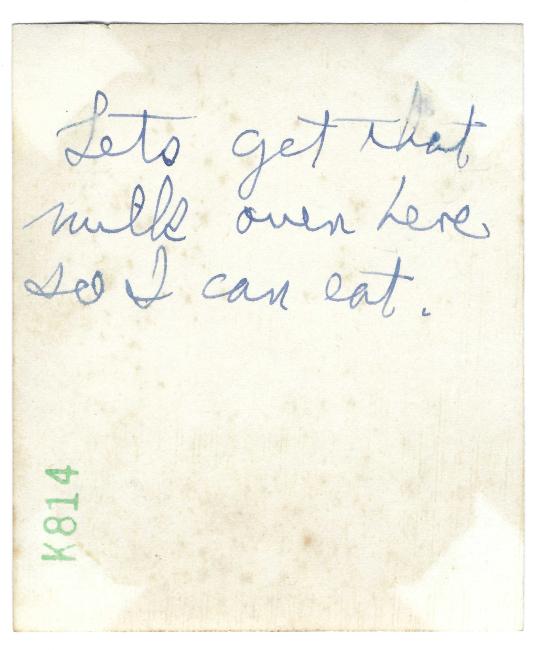 Lets get that
milk over here
so I can eat.
K814